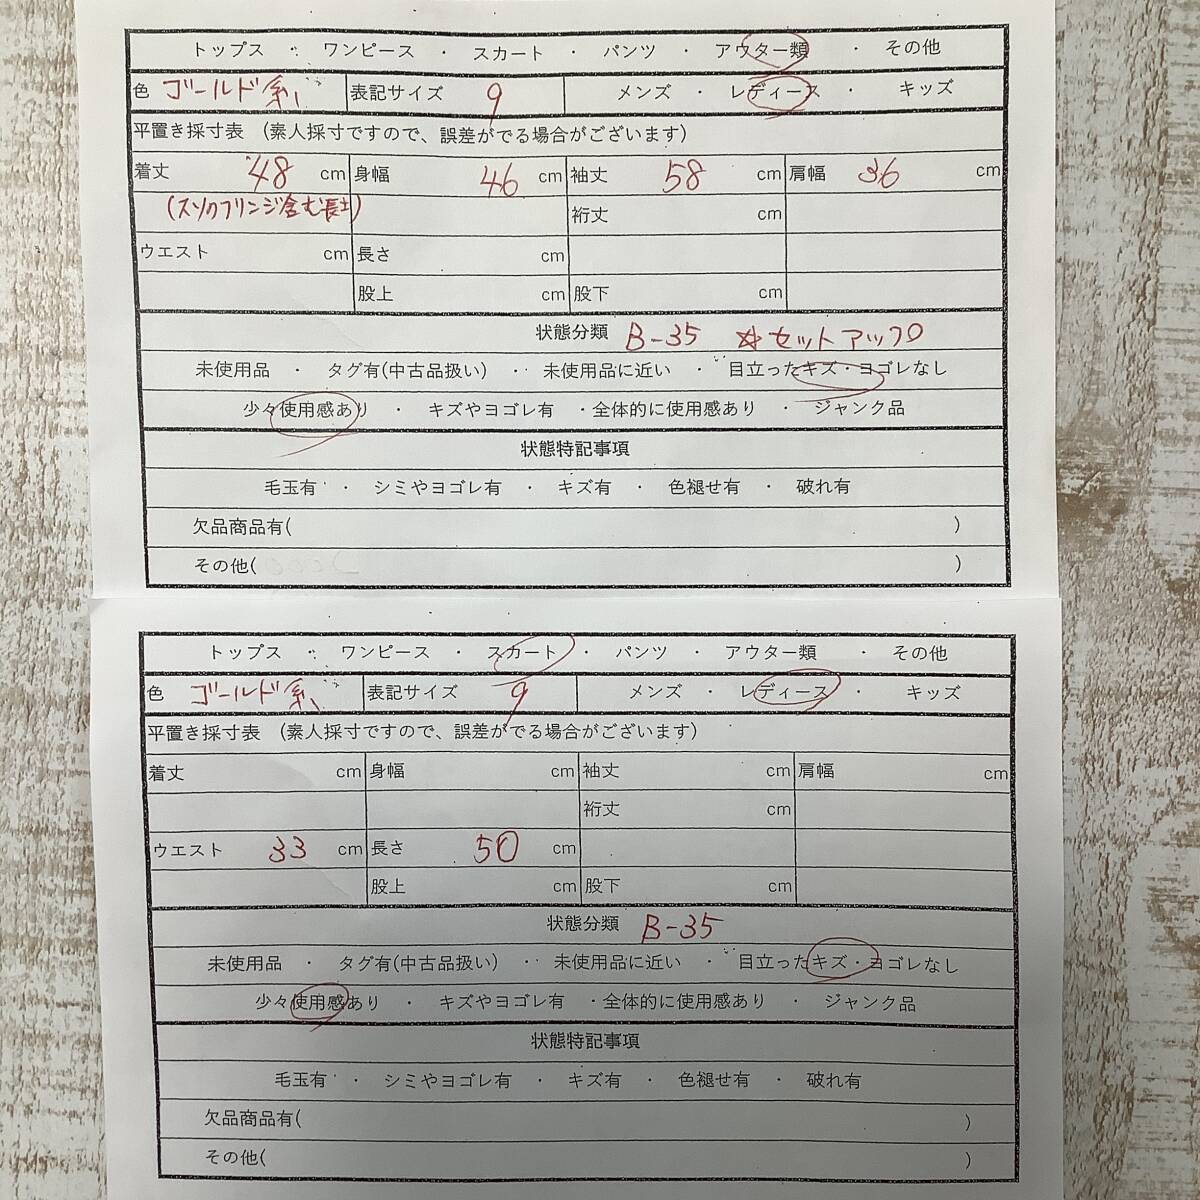 トップス ・ ワンピース ・ スカート ・ パンツ ・ アウター類 ・ その他
色 ゴールド系 表記サイズ 9 メンズ ・ レディース ・ キッズ
平置き採寸表 (素人採寸ですので、誤差がでる場合がございます)
着丈 48 cm 身幅 46 cm 袖丈 58 cm 肩幅 36 cm
(スソのフリンジ含む長さ) 裄丈 cm
ウエスト cm 長さ cm
股上 cm 股下 cm
状態分類 B-35 ☆セットアップ
未使用品 ・ タグ有(中古品扱い) ・ 未使用品に近い ・ 目立ったキズ・ヨゴレなし
少々使用感あり ・ キズやヨゴレ有 ・全体的に使用感あり ・ ジャンク品
状態特記事項
毛玉有 ・ シミやヨゴレ有 ・ キズ有 ・ 色褪せ有 ・ 破れ有
欠品商品有( )
その他( )
トップス ・ ワンピース ・ スカート ・ パンツ ・ アウター類 ・ その他
色 ゴールド系 表記サイズ 9 メンズ ・ レディース ・ キッズ
平置き採寸表 (素人採寸ですので、誤差がでる場合がございます)
着丈 cm 身幅 cm 袖丈 cm 肩幅 cm
裄丈 cm
ウエスト 33 cm 長さ 50 cm
股上 cm 股下 cm
状態分類 B-35
未使用品 ・ タグ有(中古品扱い) ・ 未使用品に近い ・ 目立ったキズ・ヨゴレなし
少々使用感あり ・ キズやヨゴレ有 ・全体的に使用感あり ・ ジャンク品
状態特記事項
毛玉有 ・ シミやヨゴレ有 ・ キズ有 ・ 色褪せ有 ・ 破れ有
欠品商品有( )
その他( )